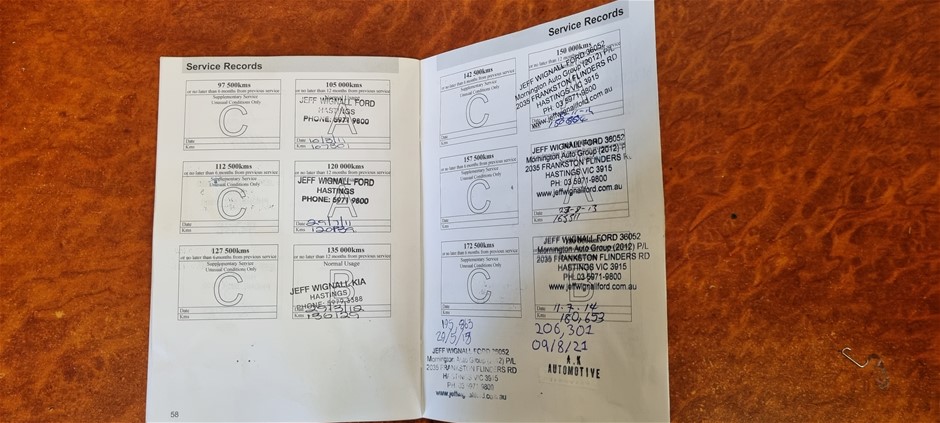 Service Records
97 500kms
or no later than 6 months from previous service
Supplementary Service
Unusual Conditions Only
C
Date
Kms
105 000kms
or no later than 12 months from previous service
JEFF WIGNALL FORD
HASTINGS
PHONE: 5971 9800
A
Date 10/3/11
Kms 107501
112 500kms
or no later than 6 months from previous service
Supplementary Service
Unusual Conditions Only
C
Date
Kms
120 000kms
or no later than 12 months from previous service
JEFF WIGNALL FORD
HASTINGS
PHONE: 5971 9800
A
Date
Kms
127 500kms
or no later than 6 months from previous service
Supplementary Service
Unusual Conditions Only
C
Date
Kms
135 000kms
or no later than 12 months from previous service
Normal Usage
B
JEFF WIGNALL KIA
HASTINGS
Date
Kms 136129
58
Service Records
142 500kms
or no later than 6 months from previous service
Supplementary Service
Unusual Conditions Only
C
Date
Kms
150 000kms
or no later than 12 months from previous service
JEFF WIGNALL FORD 36052
Mornington Auto Group (2012) P/L
2035 FRANKSTON FLINDERS RD
HASTINGS VIC 3915
PH: 03 5971-9800
www.jeffwignallford.com.au
157 500kms
or no later than 6 months from previous service
Supplementary Service
Unusual Conditions Only
C
Date
Kms
JEFF WIGNALL FORD 36052
Mornington Auto Group (2012) P/
2035 FRANKSTON FLINDERS R
HASTINGS VIC 3915
PH: 03 5971-9800
www.jeffwignallford.com.au
A
172 500kms
or no later than 6 months from previous service
Supplementary Service
Unusual Conditions Only
C
Date
Kms
JEFF WIGNALL FORD 36052
Mornington Auto Group (2012) P/L
2035 FRANKSTON FLINDERS RD
HASTINGS VIC 3915
PH: 03 5971-9800
www.jeffwignallford.com.au
B
Date 11.7.14
Kms 180,653
JEFF WIGNALL FORD 36052
Mornington Auto Group (2012) P/L
2035 FRANKSTON FLINDERS RD
HASTINGS VIC 3915
PH: 03 5971-9800
206,301
09/8/21
A.K
AUTOMOTIVE